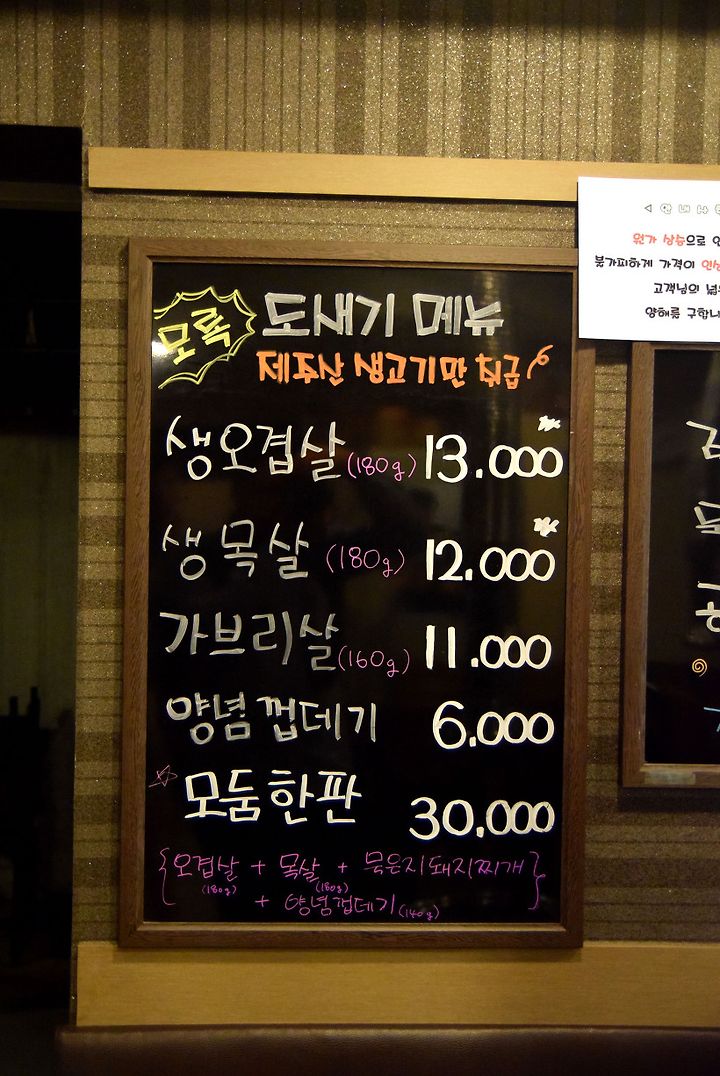 모록 도새기 메뉴
제주산 생고기만 취급
생오겹살 (180g) 13.000
생목살 (180g) 12.000
가브리살 (160g) 11.000
양념껍데기 6.000
☆ 모둠한판 30.000
{오겹살 + 목살 + 묵은지돼지찌개}
(180g) (180g)
+ 양념껍데기 (140g)
원가 상승으로
불가피하게 가격이
고객님의
양해를